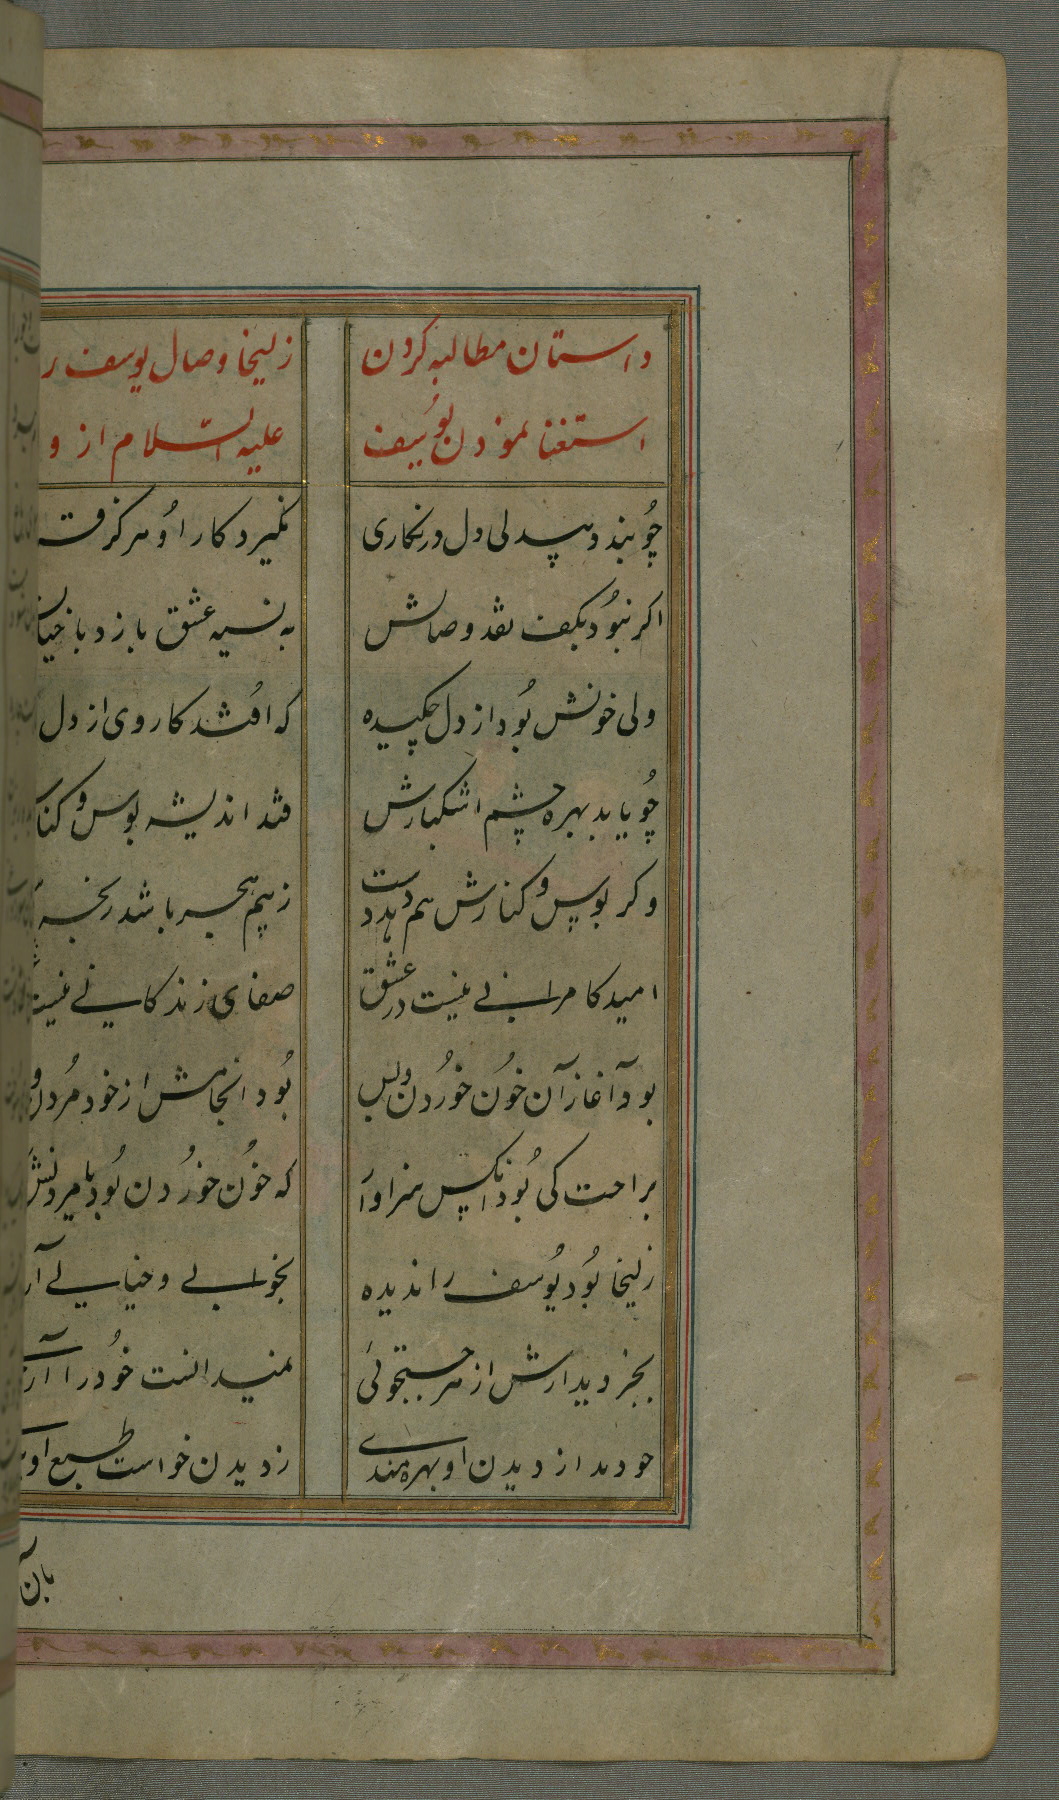 داستان مطالبه کردن زلیخا وصال یوسف را
استغنا نمودن یوسف علیه السلام از و
چو بندد بیدلی دل در نگاری نگیرد کار او هرگز
اگر نبود بکف نقد وصالش به نسیه عشق بازد با خیالش
ولی خونش بود از دل چکیده که افتد کار وی از دل
چو یابد بهره چشم اشکبارش فتد اندیشه بوس و کنارش
وگر بوس و کنارش هم دهد دست ز بیم هجر باشد رنجه
امید کامرانی نیست در عشق صفای زندگانی نیست
بود آغاز آن خون خوردن و بس بود انجامش از خود مردن و
براحت کی بود آنکس سزاوار که خون خوردن بود یا مردنش
زلیخا بود یوسف را ندیده بخوابی و خیالی
بجز دیدارش از هر جستجوئی نمیدانست خود را
چو دید از دیدن او بهره مندی ز دیدن خواست طبع او
بآن